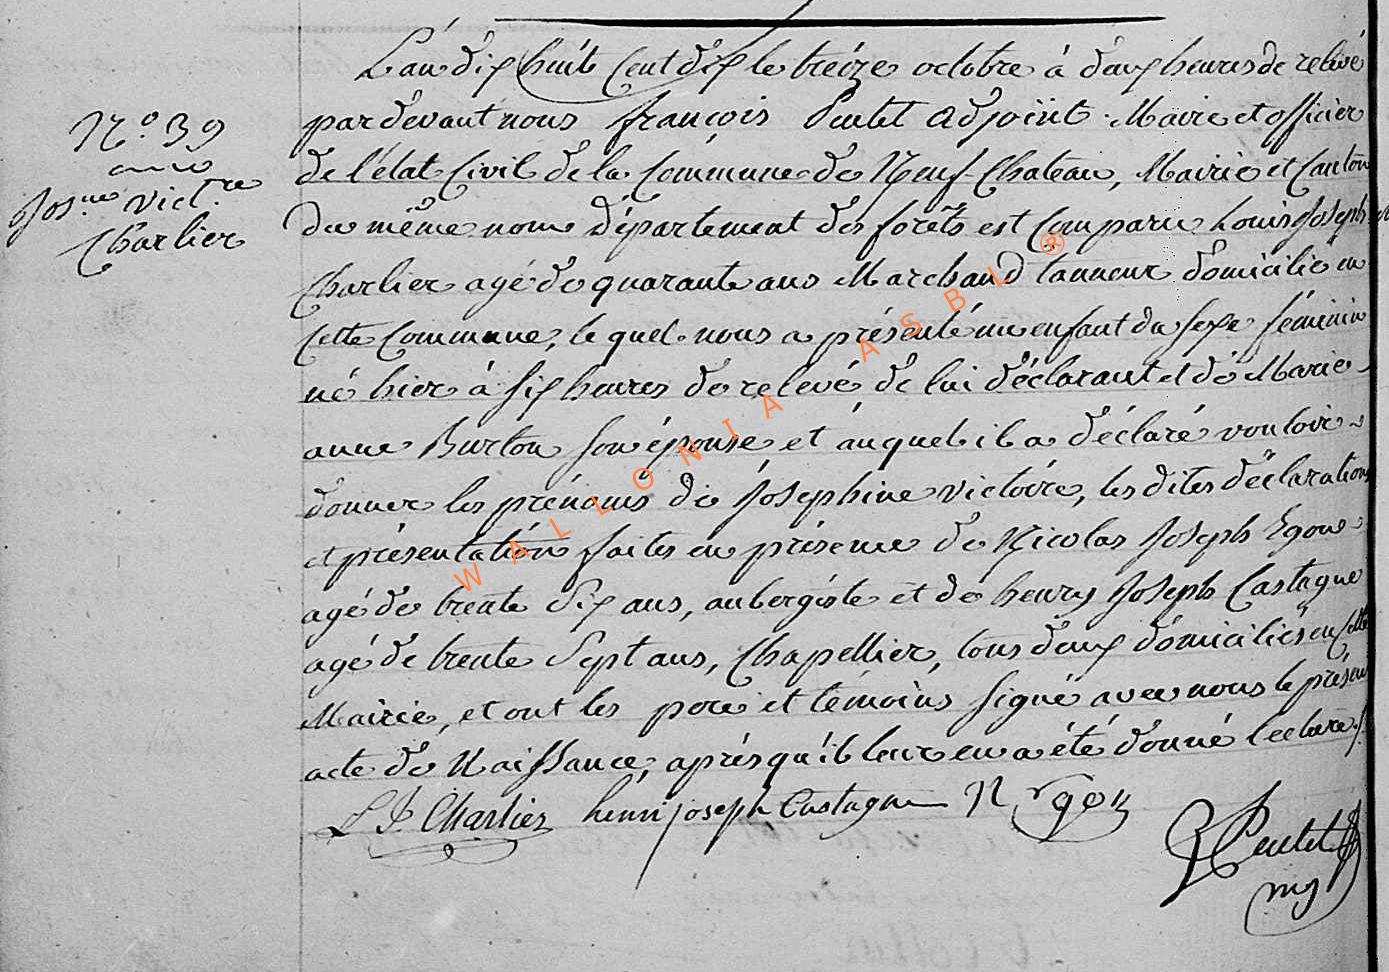 N.o 39
Jos.ne Vict.re
Charlier
L'an dix huit Cent dix le treize octobre à deux heures de relevé
pardevant nous françois Pentet adjoint Maire et officier
de l'état Civil de la Commune de Neuf-Chateau, Mairie et Canton
du même nom département des forêts est Comparu Louis Joseph
Charlier agé de quarante ans Marchand tanneur domicilié en
Cette Commune, lequel nous a présenté un enfant du sexe féminin
né hier à six heures de relevé de lui déclarant et de Marie
anne Burton son épouse et auquel il a déclaré vouloir
donner les prénoms de Josephine victoire, les dites déclarations
et présentation faites en présence de Nicolas Joseph Egon
agé de trente six ans, aubergiste et de henry Joseph Castagne
agé de trente Sept ans, Chapellier, tous deux domiciliés en cette
Mairie, et ont les pere et témoins signé avec nous le présent
acte de Naissance, après qu'il leur en a été donné lecture.
L J. Charlier henri joseph Castagne N Egon
Pentet
WALLONIA ASBL ®